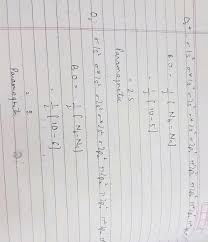 O₂⁺ σ1s² σ*1s² σ2s² σ*2s² σ2p² π2p² π2p² π*2p¹
B.O = 1/2 [Nb - Na]
= 1/2 [10 - 5]
= 2.5
Paramagnetic
O₂ σ1s² σ*1s² σ2s² σ*2s² σ2p² π2p² π2p² π*2p¹
B.O = 1/2 [Nb - Na]
= 1/2 [10 - 6]
= 2
Paramagnetic